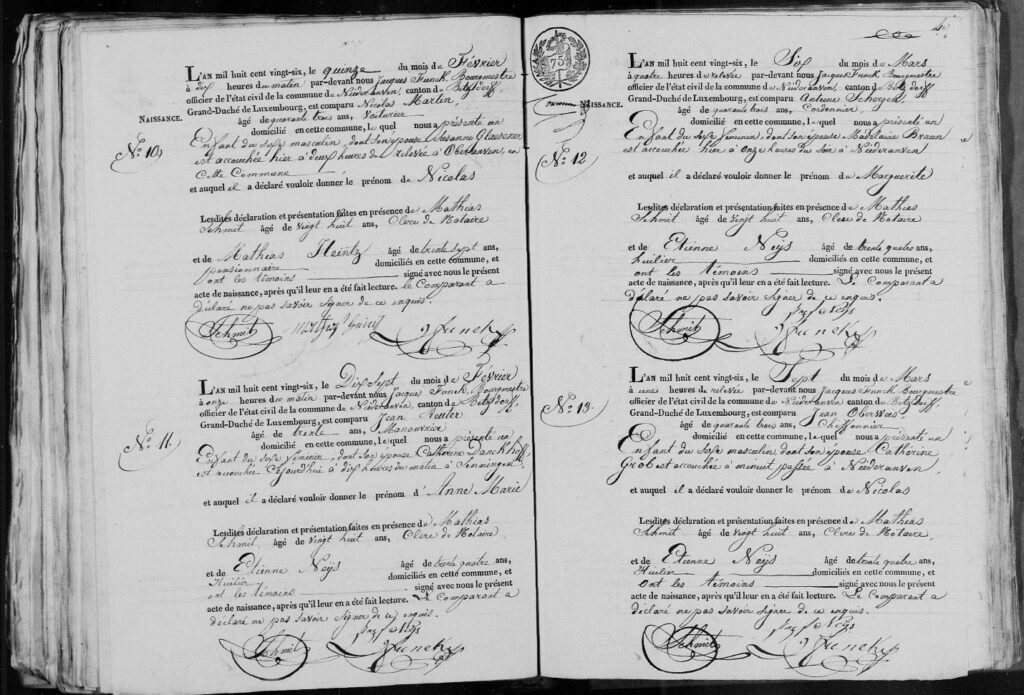 L'AN mil huit cent vingt-six, le quinze du mois de Février
à dix heures du matin par-devant nous Jacques Funck Bourgmestre
officier de l'état civil de la commune de Niederanven, canton de Betzdorff
Grand-Duché de Luxembourg, est comparu Nicolas Martin,
NAISSANCE.
âgé de quarante trois ans, Voiturier
domicilié en cette commune, lequel nous a présenté un
N.º 10,
Enfant du sexe masculin, dont son épouse Susanne Glaesener
est accouchée hier à deux heures du relevée à Oberanven, en
cette Commune
et auquel il a déclaré vouloir donner le prénom de Nicolas
Lesdites déclaration et présentation faites en présence de Mathias
Schmit âgé de vingt huit ans, Clerc de Notaire
et de Mathias Heintz âgé de trente sept ans,
pensionnaire domiciliés en cette commune, et
ont les témoins signé avec nous le présent
acte de naissance, après qu'il leur en a été fait lecture. Le Comparant a
déclaré ne pas savoir signer de ce enquis.
Schmit Funck
L'AN mil huit cent vingt-six, le Dix Sept du mois de Février
à onze heures du matin par-devant nous Jacque Funck, Bourgmestre
officier de l'état civil de la commune de Niederanven, canton de Betzdorff
Grand-Duché de Luxembourg, est comparu Jean
âgé de trente ans, Manouvrier
N.º 11.
domicilié en cette commune, lequel nous a présenté un
Enfant du Sexe féminin, dont son épouse Catherine Danckhoff
est accouchée Cejourdhui à dix heures du matin à Senningen
et auquel il a déclaré vouloir donner le prénom d'Anne Marie
Lesdites déclaration et présentation faites en présence de Mathias
Schmit, âgé de vingt huit ans, Clerc de Notaire
et de Etienne Neÿs âgé de trente quatre ans,
Huilier domiciliés en cette commune, et
ont les témoins signé avec nous le présent
acte de naissance, après qu'il leur en a été fait lecture. Le Comparant a
déclaré ne pas savoir signer de ce enquis.
Neys
Schmit Funck
75
L'AN mil huit cent vingt-six, le Six du mois de Mars
à quatre heures de relevée par-devant nous Jacques Funck Bourgmestre
officier de l'état civil de la commune de Niederanven, canton de Betzdorff
Grand-Duché de Luxembourg, est comparu Antoine Scherger
NAISSANCE.
âgé de quarante trois ans, Cordonnier
domicilié en cette commune, lequel nous a présenté un
N.º 12.
Enfant du Sexe féminin, dont son épouse Madelaine Braun
est accouchée hier à Onze heures du Soir à Niederanven
et auquel il a déclaré vouloir donner le prénom de Marguerète
Lesdites déclaration et présentation faites en présence de Mathias
Schmit âgé de vingt huit ans, Clerc de Notaire
et de Etienne Neÿs âgé de trente quatre ans,
huilier domiciliés en cette commune, et
ont les témoins signé avec nous le présent
acte de naissance, après qu'il leur en a été fait lecture. Le Comparant a
déclaré ne pas savoir signer de ce enquis.
Neys
Schmit Funck
L'AN mil huit cent vingt-six, le Sept du mois de Mars
à une heures de relevée par-devant nous Jacques Funck Bourgmestre
officier de l'état civil de la commune de Niederanven canton de Betzdorff
Grand-Duché de Luxembourg, est comparu Jean Oberwas
N.º 13.
âgé de quarante trois ans, Cheffonnier
domicilié en cette commune, lequel nous a présenté un
Enfant du Sexe masculin, dont son épouse Catherine
Grob est accouchée à minuit passée à Niederanven
et auquel il a déclaré vouloir donner le prénom de Nicolas
Lesdites déclaration et présentation faites en présence de Mathias
Schmit, âgé de vingt huit ans, Clerc de Notaire,
et de Etienne Neÿs âgé de trente quatre ans,
Huilier domiciliés en cette commune, et
ont les témoins signé avec nous le présent
acte de naissance, après qu'il leur en a été fait lecture. Le Comparant a
déclaré ne pas savoir signer de ce enquis.
Neys
Schmit Funck